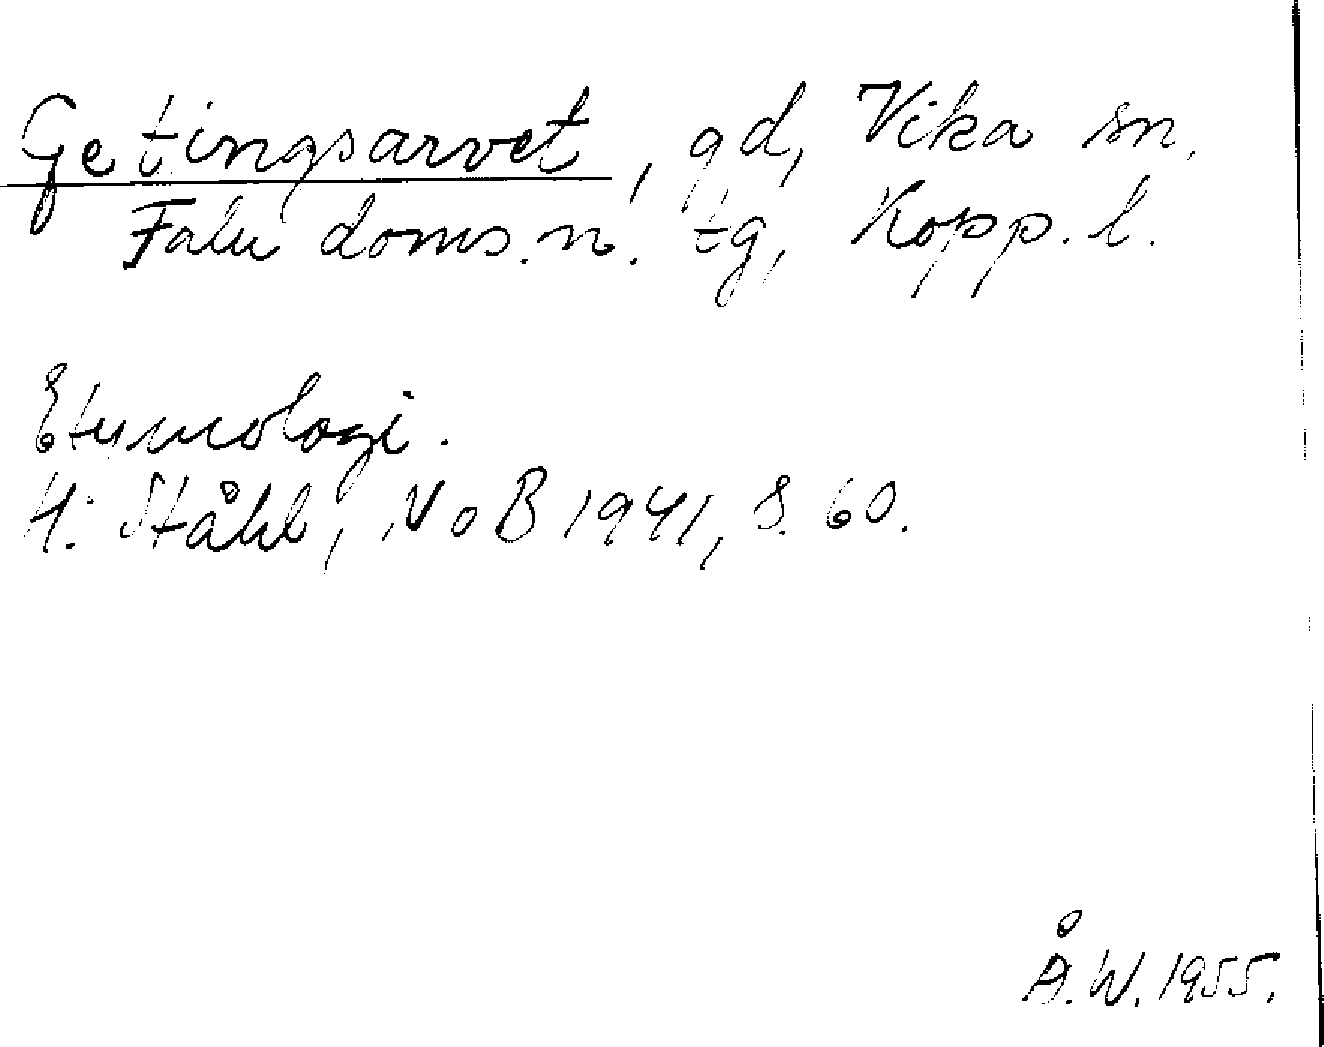 Getingsarvet, gd, Vika sn,
Falu doms.n. tg, Kopp. l.
Etymologi.
H. Ståhl, NoB 1941, s. 60.
Å.W. 1955.